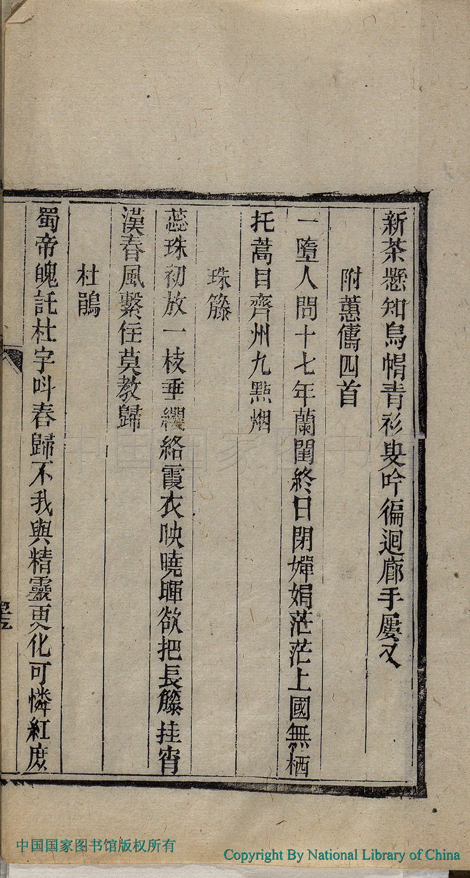 新茶遥知烏帽青衫叟吟徧迴廊手屢叉
附蕙儔四首
一墮人間十七年蘭閨終日閉嬋娟茫茫上國無栖
托蒿目齊州九點烟
珠籐
蕊珠初放一枝垂纓絡霞衣映曉暉欲把長籐挂宵
漢春風繫住莫教歸
杜鵑
蜀帝魄託杜宇叫春歸不我與精靈更化可憐紅度
中国国家图书馆版权所有
Copyright By National Library of China